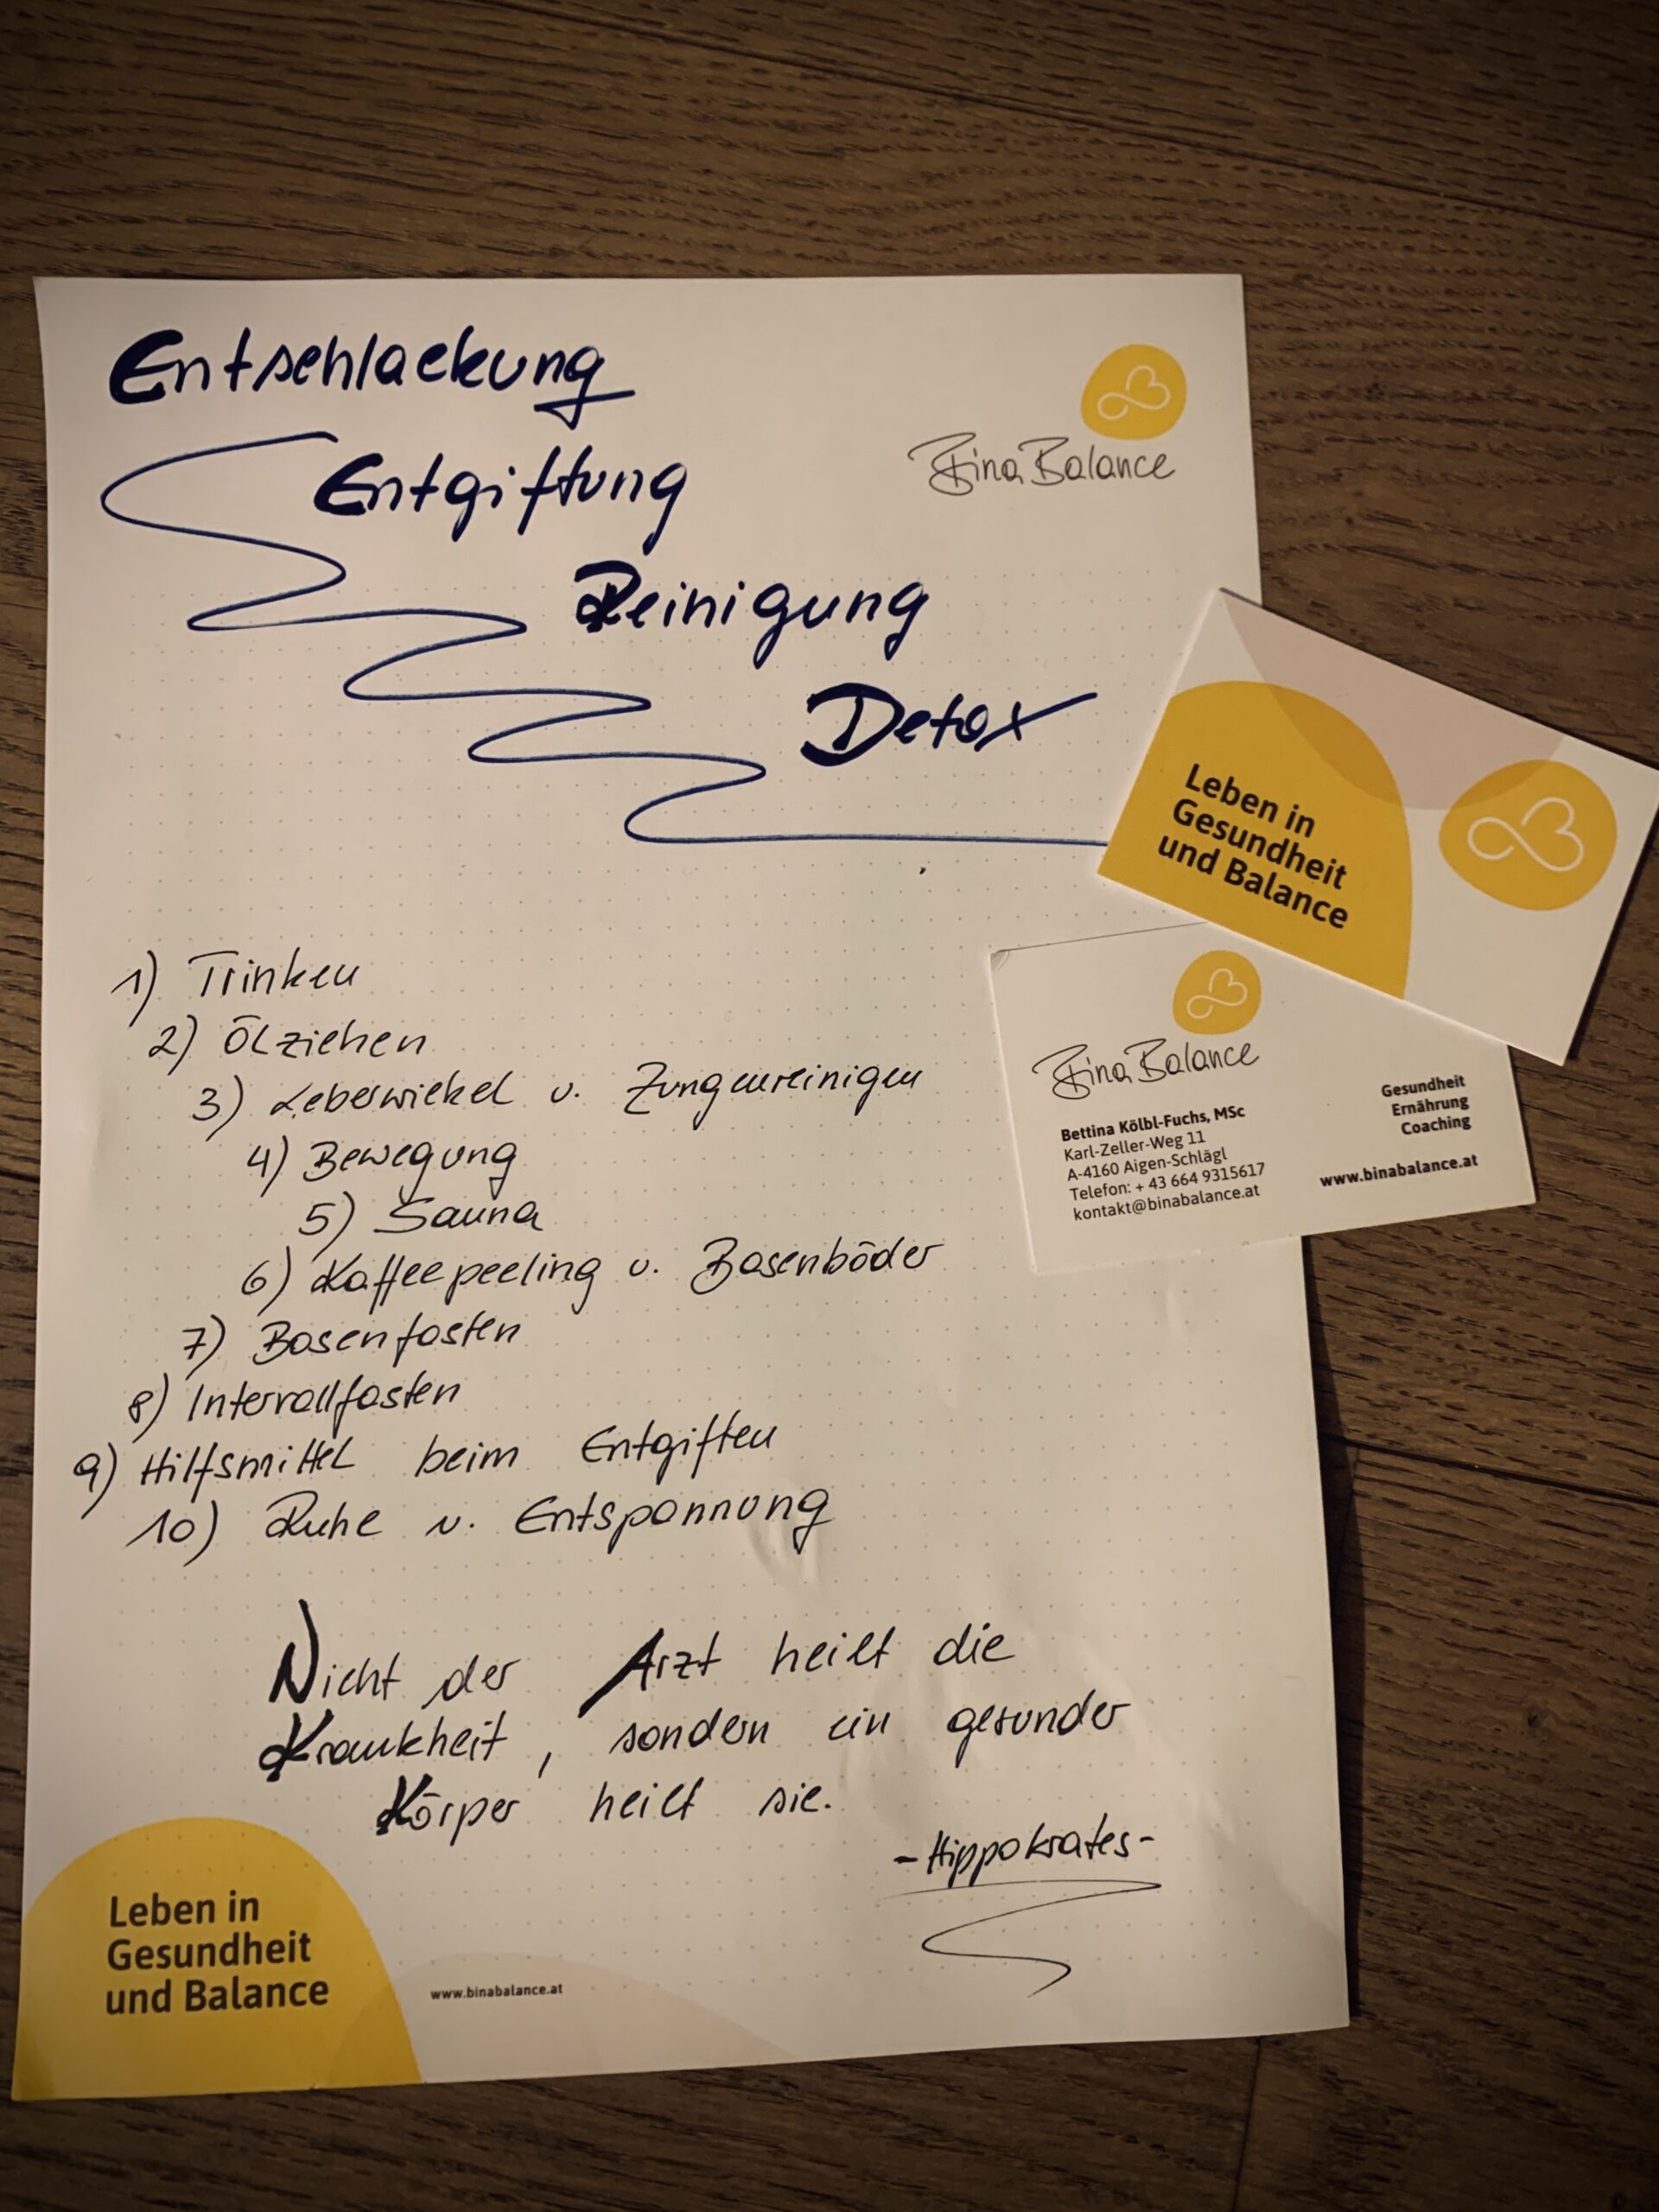 Entschlackung
Entgiftung
Reinigung
Detox
Bina Balance
Leben in
Gesundheit
und Balance
Bina Balance
Bettina Kölbl-Fuchs, MSc
Karl-Zeller-Weg 11
A-4160 Aigen-Schlägl
Telefon: + 43 664 9315617
kontakt@binabalance.at
Gesundheit
Ernährung
Coaching
www.binabalance.at
1) Trinken
2) Ölziehen
3) Leberwickel u. Zungenreinigen
4) Bewegung
5) Sauna
6) Kaffeepeeling u. Basenbäder
7) Basenfasten
8) Intervallfasten
9) Hilfsmittel beim Entgiften
10) Ruhe u. Entspannung
Nicht der Arzt heilt die
Krankheit, sondern ein gesunder
Körper heilt sie.
- Hippokrates -
Leben in
Gesundheit
und Balance
www.binabalance.at